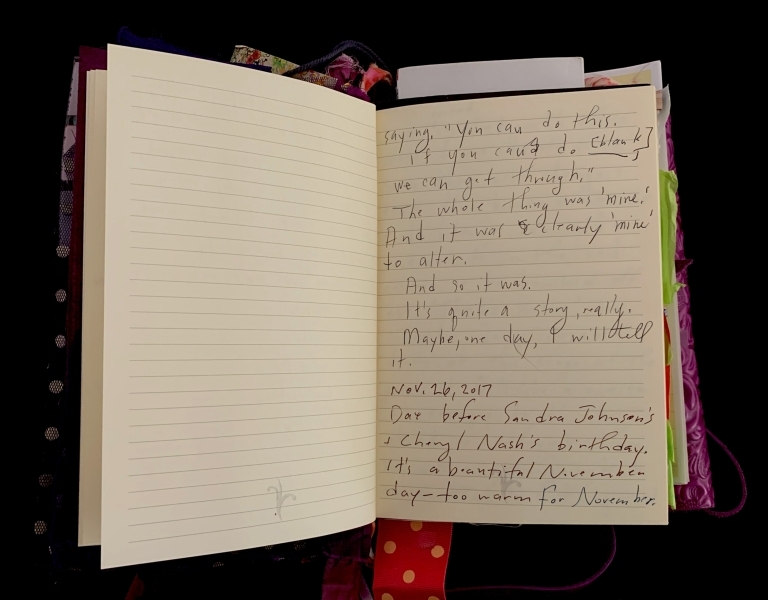 saying, "You can do this.
If you can do [blank]
we can get through."
The whole thing was 'mine.'
And it was clearly 'mine'
to alter.
And so it was.
It's quite a story, really.
Maybe, one day, I will tell
it.
Nov. 26, 2017
Day before Sandra Johnson's
+ Cheryl Nash's birthday.
It's a beautiful November
day—too warm for November.